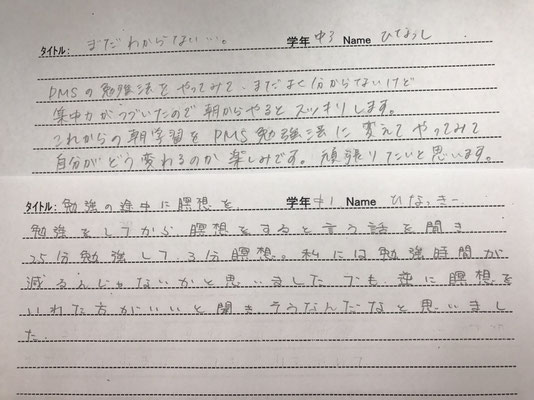 タイトル: まだわからない…。 学年 中3 Name ひなっし
PMSの勉強法をやってみて、まだよく分からないけど
集中力がつづいたので朝からやるとスッキリします。
これからの朝学習をPMS勉強法に変えてやってみて
自分がどう変わるのか楽しみです。頑張りたいと思います。
タイトル: 勉強の途中に瞑想を、 学年 中1 Name ひなっきー
勉強をしてから瞑想をすると言う話を聞き
25分勉強して、3分瞑想。私には勉強時間が
減るんじゃないかと思いましたでも、逆に瞑想を
いれた方がいいと聞きそうなんだなと思いまし
た。